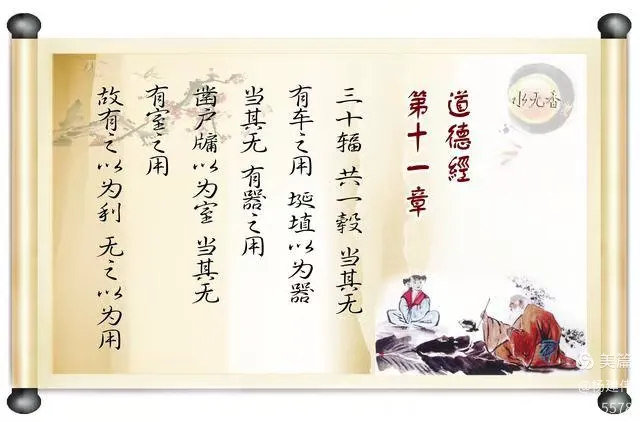 道德經
第十一章
三十辐 共一毂 当其无
有车之用 埏埴以为器
当其无 有器之用
凿户牖以为室 当其无
有室之用
故有之以为利 无之以为用
水无香
美篇